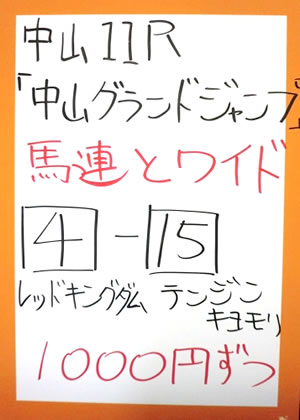 中山11R
「中山グランドジャンプ」
馬連とワイド
4-15
レッドキングダム テンジン
キヨモリ
1000円ずつ